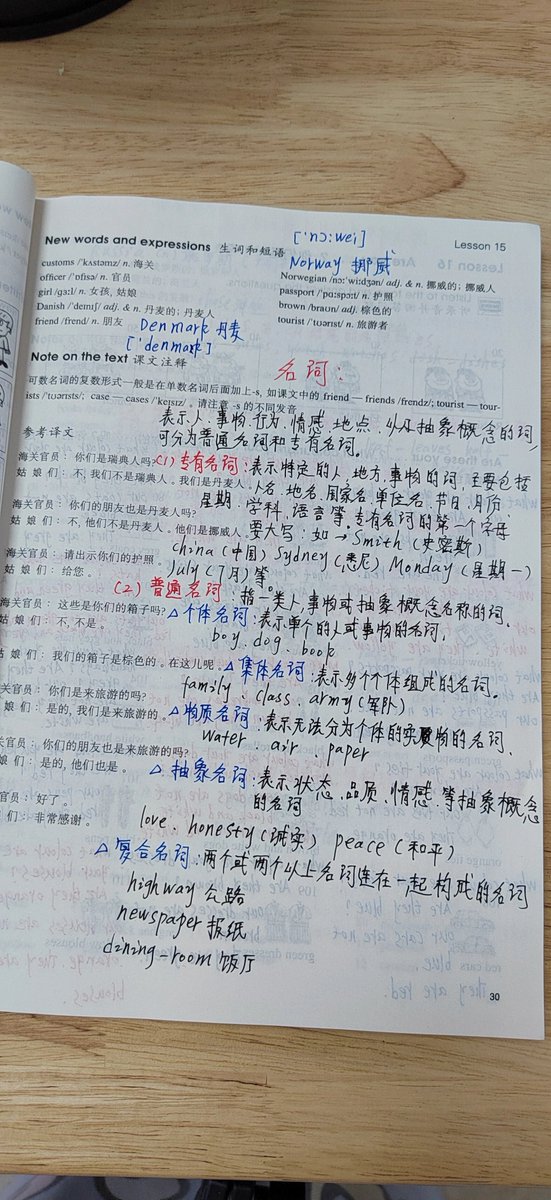 New words and expressions 生词和短语
Lesson 15
['nɔ:wei]
Norway 挪威
customs /'kʌstəmz/ n. 海关
officer /'ɒfisə/ n. 官员
girl /gɜ:l/ n. 女孩, 姑娘
Danish /'demiʃ/ adj. & n. 丹麦的; 丹麦人
friend /frend/ n. 朋友
Denmark 丹麦
['denmark]
Norwegian /nɔ:'wi:dʒən/ adj. & n. 挪威的; 挪威人
passport /'pɑ:spɔ:t/ n. 护照
brown /braun/ adj. 棕色的
tourist /'tuərist/ n. 旅游者
Note on the text 课文注释
名词:
可数名词的复数形式一般是在单数名词后面加上-s, 如课文中的 friend — friends /frendz/; tourist — tour-
ists /'tuərists/; case — cases /'keisiz/ 。请注意 -s 的不同发音
表示人、事物、行为、情感、地点、以及抽象概念的词,
可分为普通名词和专有名词。
参考译文
海关官员: 你们是瑞典人吗?
(1) 专有名词: 表示特定的人、地方、事物的词, 主要包括
姑 娘 们: 不, 我们不是瑞典人。我们是丹麦人。
人名、地名、国家名、单位名、节日、月份、
星期、学科、语言等, 专有名词的第一个字母
海关官员: 你们的朋友也是丹麦人吗?
姑 娘 们: 不, 他们不是丹麦人。他们是挪威人。
要大写: 如 → Smith (史密斯)
china (中国) Sydney (悉尼) Monday (星期一)
海关官员: 请出示你们的护照。
July (7月) 等。
姑 娘 们: 给您。
(2) 普通名词: 指一类人, 事物或抽象概念名称的词。
海关官员: 这些是你们的箱子吗?
△个体名词: 表示单个的人或事物的名词,
姑 娘 们: 不, 不是。
boy、dog、book
海关官员: 你们的箱子是什么颜色的?
姑 娘 们: 我们的箱子是棕色的。在这儿呢。
△集体名词: 表示多个个体组成的名词。
关官员: 你们是来旅游的吗?
family、class、army (军队)
娘 们: 是的, 我们是来旅游的。
△物质名词: 表示无法分为个体的实物的名词、
water、air、paper
关官员: 你们的朋友也是来旅游的吗?
娘 们: 是的, 他们也是。
△ 抽象名词: 表示状态、品质、情感、等抽象概念
的名词
官员: 好了。
们: 非常感谢。
love、honesty (诚实) peace (和平)
△复合名词: 两个或两个以上名词连在一起构成的名词
highway 公路
newspaper 报纸
dining-room 饭厅
30